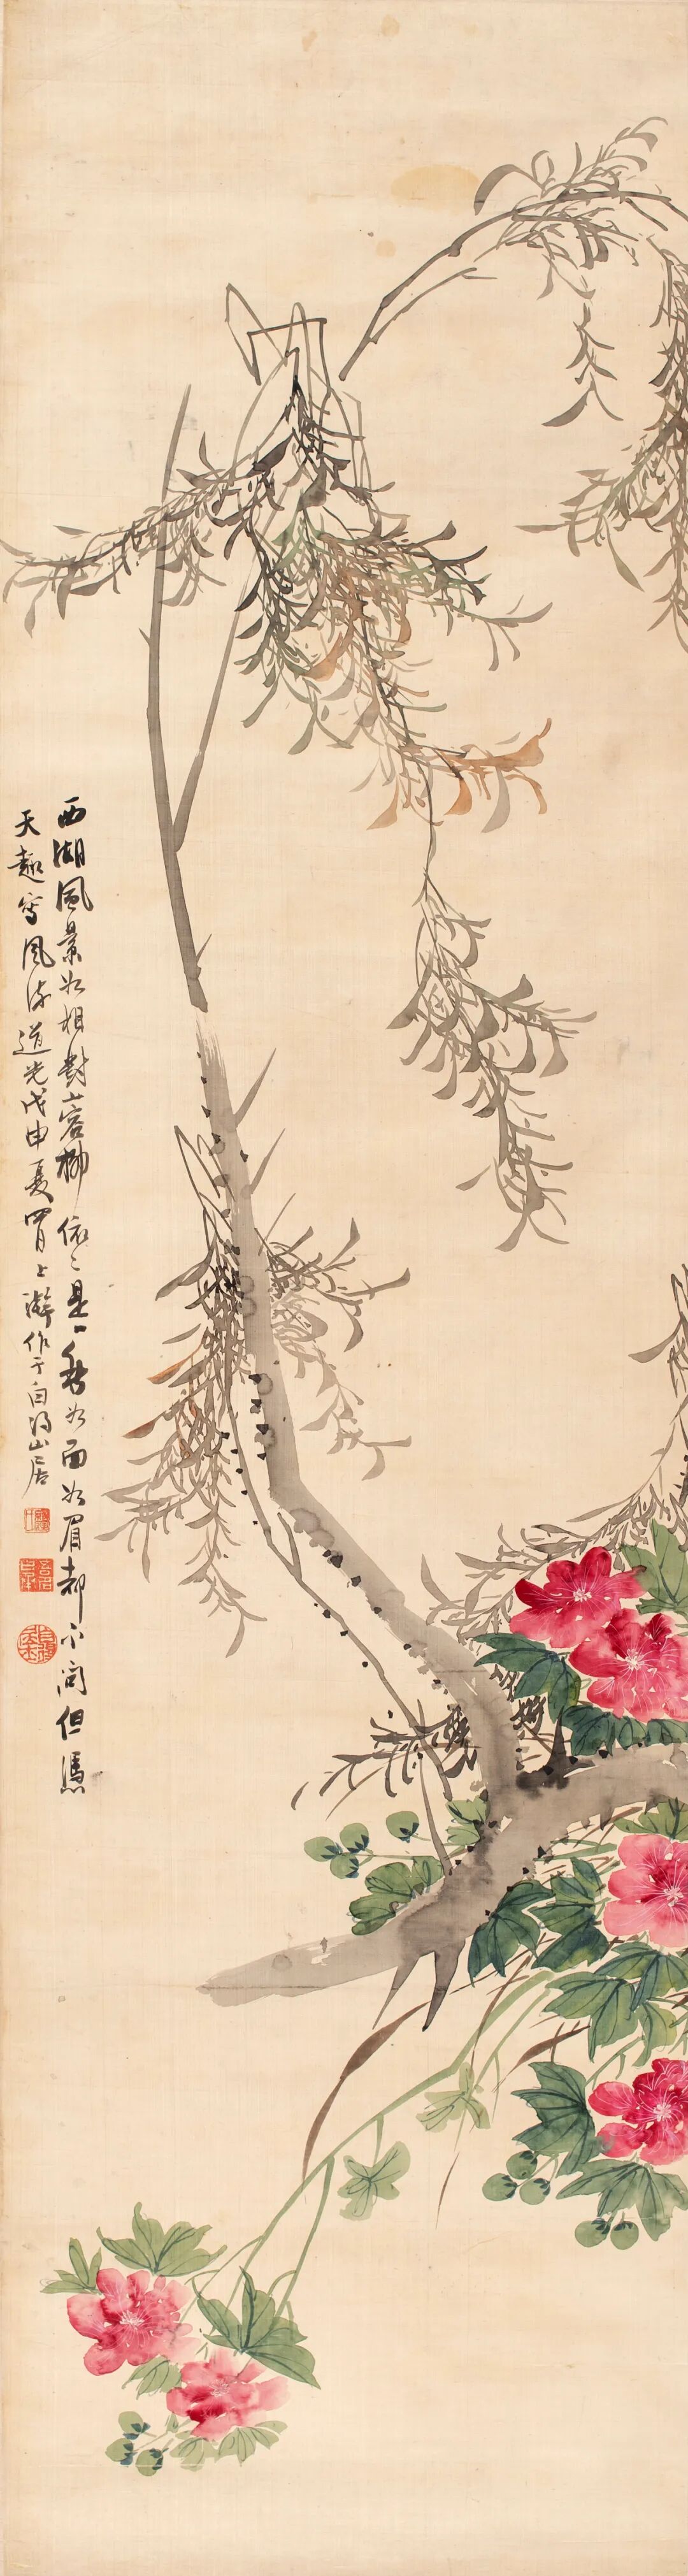 西湖風景如相對蓉柳依〻是一秋如面如眉都不問但憑
天趣寫風流道光戊申夏四月上澣作于白沙山居